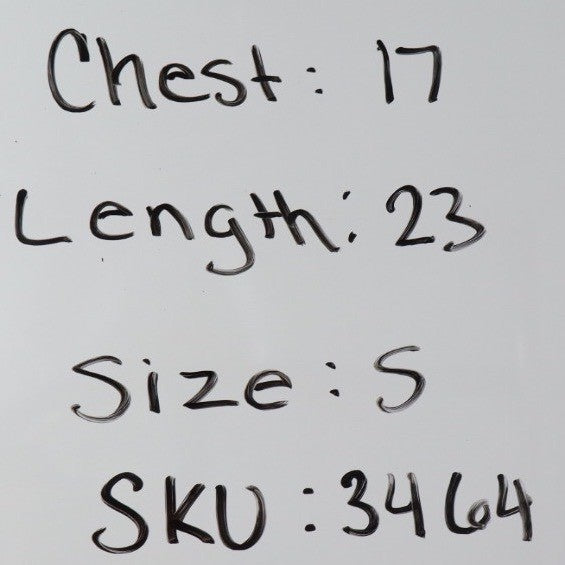 Chest: 17
Length: 23
Size: S
SKU: 3464